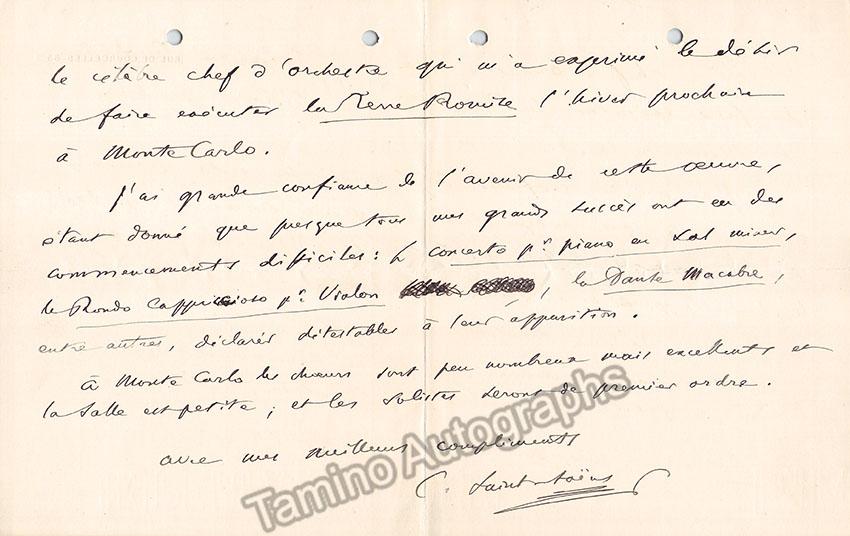 le célèbre chef d'orchestre qui m'a exprimé le désir
de faire exécuter la Terre Promise l'hiver prochain
à Monte Carlo.
J'ai grande confiance de l'avenir de cette œuvre,
étant donné que presque tous mes grands succès ont eu des
commencements difficiles : le concerto pr piano en sol mineur,
le Rondo Capriccioso pr Violon, la Danse Macabre,
entre autres, déclarés détestables à leur apparition.
à Monte Carlo les chœurs sont peu nombreux mais excellents et
la salle est petite ; et les solistes seront de premier ordre.
avec mes meilleurs compliments
C. Saint-Saëns
Tamino Autographs